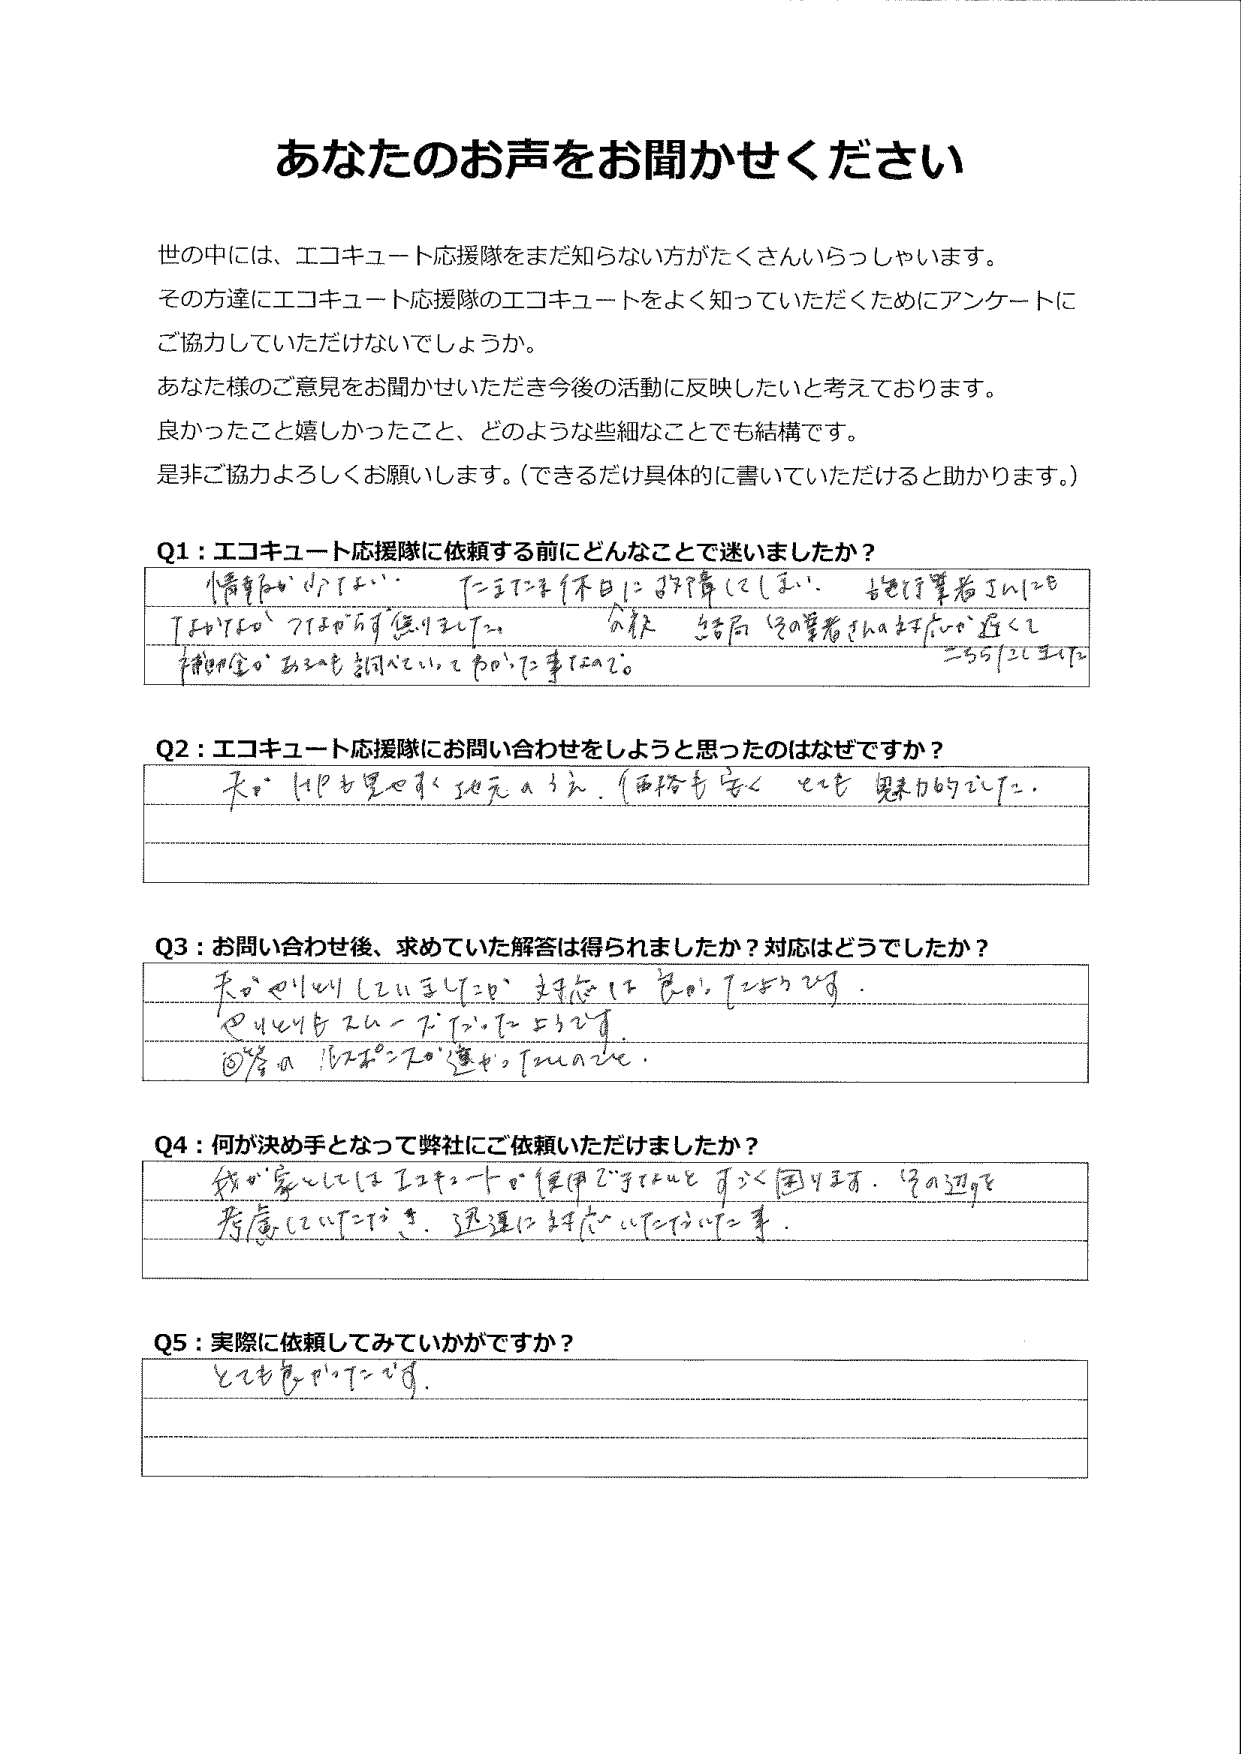 あなたのお声をお聞かせください
世の中には、エコキュート応援隊をまだ知らない方がたくさんいらっしゃいます。
その方達にエコキュート応援隊のエコキュートをよく知っていただくためにアンケートに
ご協力していただけないでしょうか。
あなた様のご意見をお聞かせいただき今後の活動に反映したいと考えております。
良かったこと嬉しかったこと、どのような些細なことでも結構です。
是非ご協力よろしくお願いします。（できるだけ具体的に書いていただけると助かります。）
Q1：エコキュート応援隊に依頼する前にどんなことで迷いましたか？
情報が少ない. たまたま休日に故障してしまい. 施行業者さんにも
なかなか つながらず焦りました。 結局 その業者さんの対応が遅くて
こちらにしました
補助金があるのも調べていってわかった事なので。
Q2：エコキュート応援隊にお問い合わせをしようと思ったのはなぜですか？
夫が HPも見やすく地元のうえ. 価格も安く とても 魅力的でした.
Q3：お問い合わせ後、求めていた解答は得られましたか？対応はどうでしたか？
夫がやりとりしていましたが 対応は 良かったようです.
やりとりもスムーズだったようです.
回答の レスポンスが速かったので.
Q4：何が決め手となって弊社にご依頼いただけましたか？
我が家としてはエコキュートが使用できないと すごく困ります. その辺りを
考慮していただき. 迅速に対応いただいた事.
Q5：実際に依頼してみていかがですか？
とても良かったです.